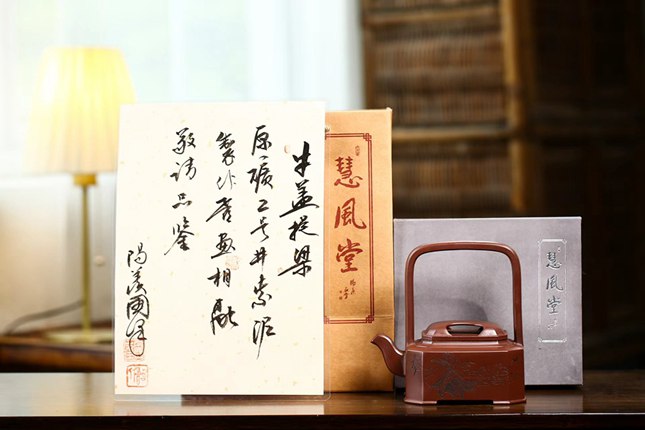 牛盖提梁
原礦五号井紫泥
製作書畫相融
敬請品鑒
陽羨
慧風堂
慧風堂